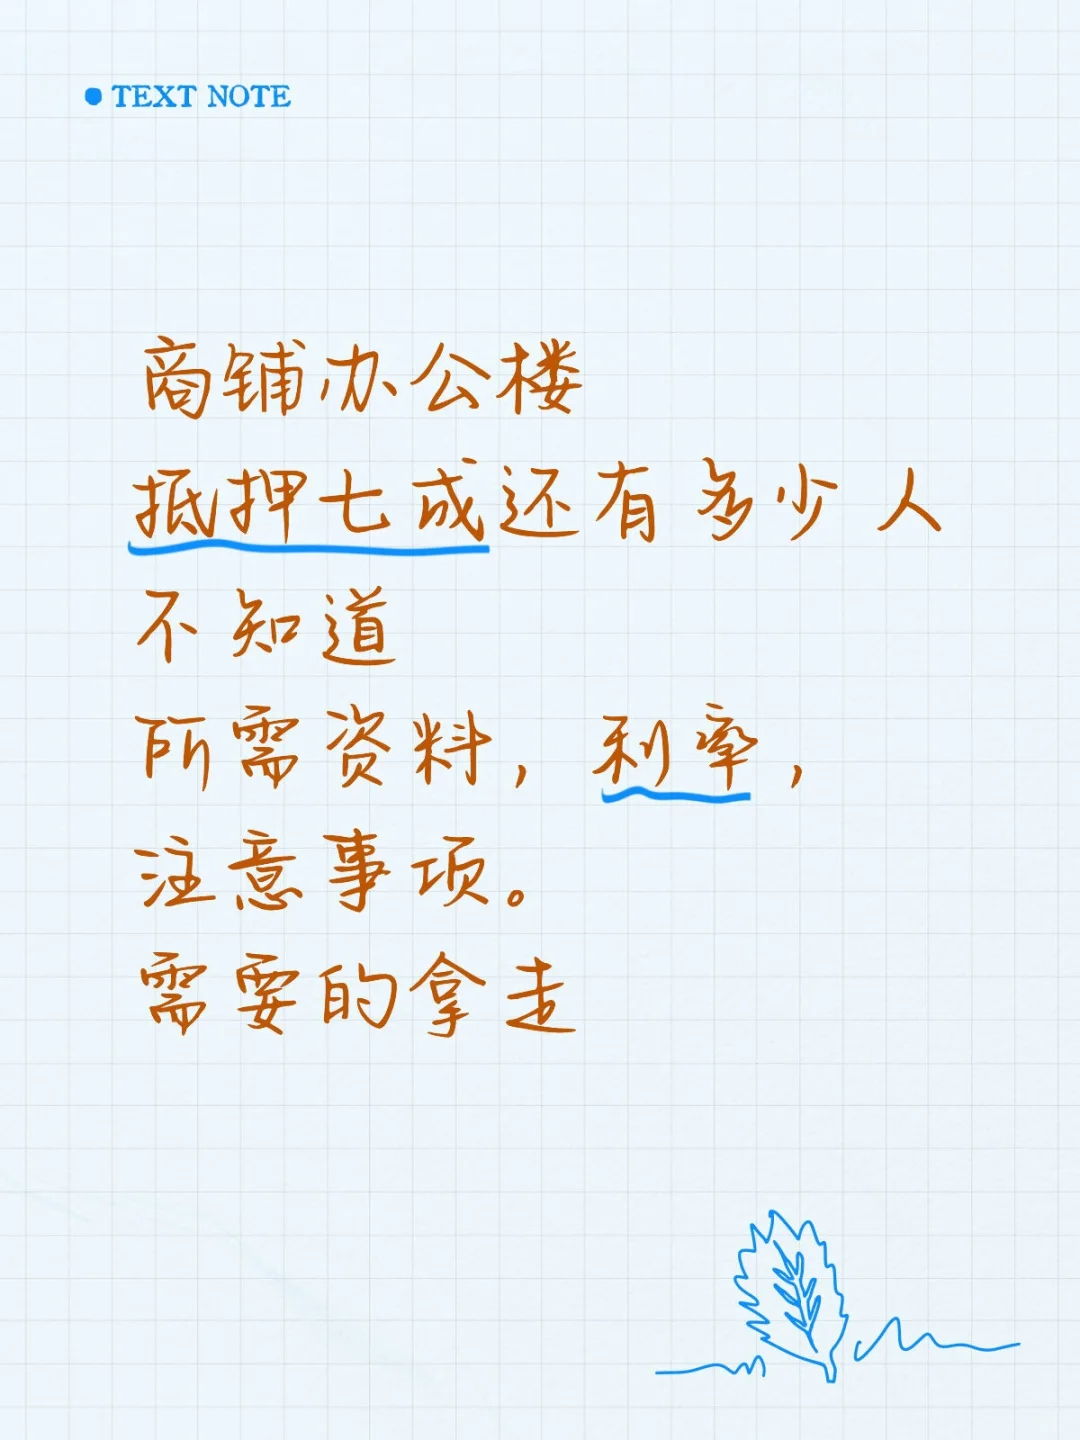 TEXT NOTE
商铺办公楼
抵押七成还有多少人
不知道
所需资料，利率，
注意事项。
需要的拿走